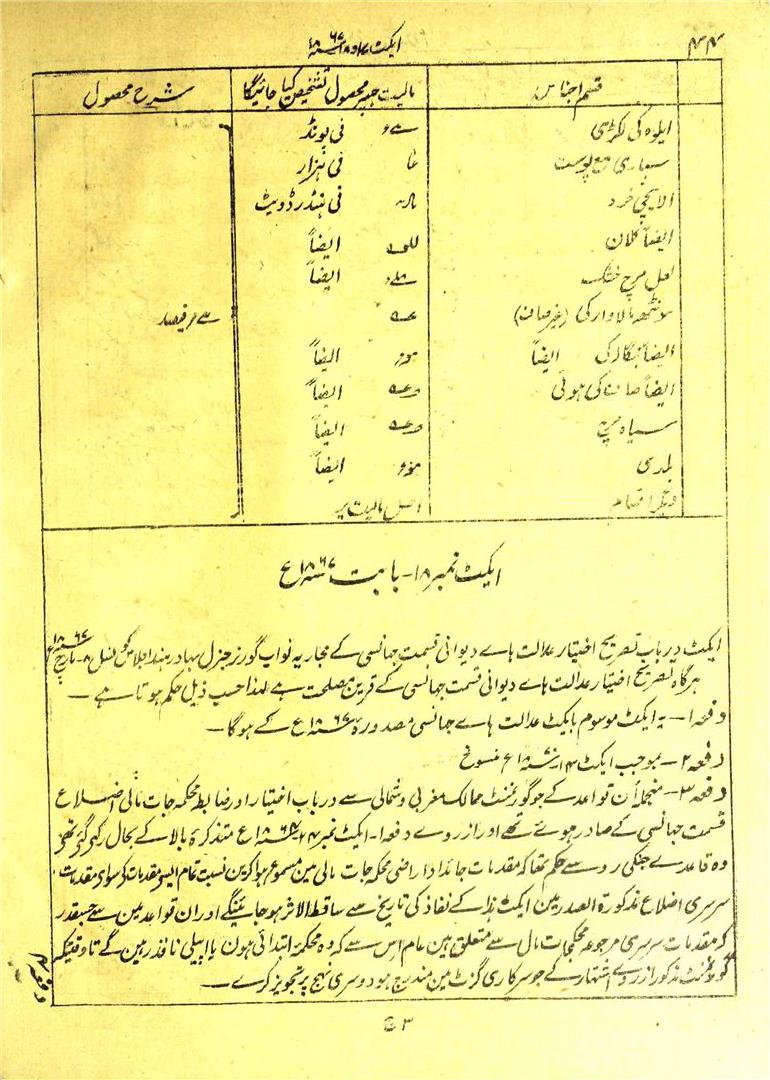 ۴۴
ایکٹ ۱۷ و ۱۸ سنہ ۱۸۶۷
قسم اجناس مالیت جسپر محصول تشخیص کیا جائیگا شرح محصول
ایلوہ کی لکڑی فی پونڈ
سپاری مع پوست فی ہزار
الایچی خرد فی ہنڈرڈویٹ
ایضاً کلان ایضاً
لعل مرچ خشک ایضاً
سونٹھ مالاوار کی (غیر صاف) فیصد
ایضاً بنگالہ کی ایضاً ایضاً
ایضاً صاف کی ہوئی ایضاً
سیاہ مرچ ایضاً
ہلدی ایضاً
دیگر اقسام اصل مالیت پر
ایکٹ نمبر ۱۸ - بابت سنہ ۱۸۶۷ع
ایکٹ درباب تصریح اختیار عدالت ہاے دیوانی قسمت جھانسی کے مجاریہ نواب گورنر جنرل بہادر ہند اجلاس کونسل ۸ - مارچ سنہ ۱۸۶۷ع
ہرگاہ تصریح اختیار عدالت ہاے دیوانی قسمت جھانسی کے قرین مصلحت ہے لہذا حسب ذیل حکم ہوتا ہے —
دفعہ ۱ - یہ ایکٹ موسوم بایکٹ عدالت ہاے جھانسی مصدورۂ سنہ ۱۸۶۷ع کے ہوگا —
دفعہ ۲ - بموجب ایکٹ ۱۴ سنہ ۱۸۷۰ع منسوخ
دفعہ ۳ - منجملہ اُن قواعد کے جو گورنمنٹ ممالک مغربی و شمالی سے درباب اختیار اور ضابطہ محکمہ جات مالی اضلاع
قسمت جھانسی کے صادر ہوئے تھے اور ازروے دفعہ ۱ - ایکٹ نمبر ۲۴ سنہ ۱۸۶۴ع متذکرہ بالا کے بحال رکھی گئی تھی
وہ قاعدے جنکی رو سے حکم تھا کہ مقدمات جائداد اراضی محکمہ جات مالی مین مسموع ہوا کرین نسبت تمام ایسی مقدمات کی سواے مقدمات
سرسری اضلاع مذکورۃ الصدر مین ایکٹ ہذا کے نفاذ کی تاریخ سے ساقط الاثر ہو جائینگے اور ان قواعد مین سے جسقدر
کہ مقدمات سرسری مرجوعہ محکمجات مال سے متعلق ہین عام اس سے کہ وہ محکمہ ابتدائی ہون یا اپیلی نافذ رہین گے تاوقتیکہ
گورنمنٹ مذکور ازروے اشتہار کے جو سرکاری گزٹ مین مندرج ہو دوسری نہج پر تجویز کرے —
دفعہ ۳
۳ ج